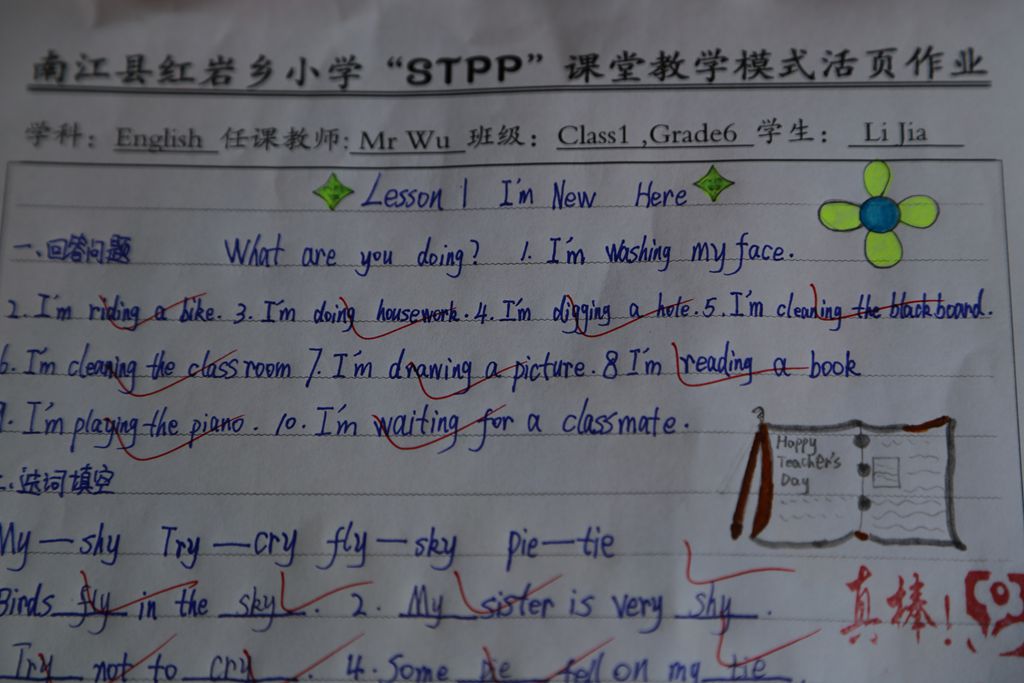 南江县红岩乡小学“STPP”课堂教学模式活页作业
学科： English 任课教师: Mr Wu 班级： Class1 ,Grade6 学生： Li Jia
Lesson 1 I'm New Here
一、回答问题 What are you doing? 1. I'm washing my face.
2. I'm riding a bike. 3. I'm doing housework. 4. I'm digging a hole. 5. I'm cleaning the blackboard.
6. I'm cleaning the classroom 7. I'm drawing a picture. 8 I'm reading a book
9. I'm playing the piano. 10. I'm waiting for a classmate.
Happy
Teacher's
Day
二、选词填空
My—shy Try—cry fly—sky pie—tie
Birds fly in the sky. 2. My sister is very shy.
真棒!
Try not to cry. 4. Some pie fell on my tie